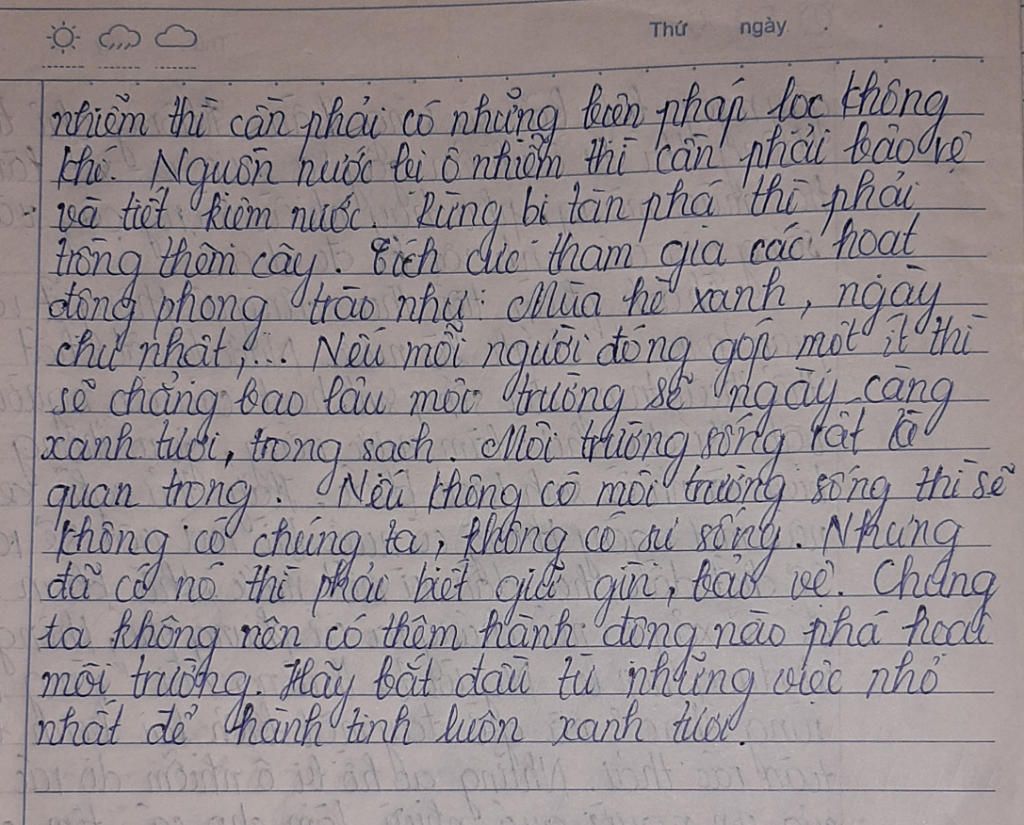 Thứ ngày
nhiễm thì cần phải có những biện pháp lọc không
khí. Nguồn nước bị ô nhiễm thì cần phải bảo vệ
và tiết kiệm nước. Rừng bị tàn phá thì phải
trồng thêm cây. Tích cực tham gia các hoạt
động phong trào như: Mùa hè xanh, ngày
chủ nhật,... Nếu mỗi người đóng góp một ít thì
sẽ chẳng bao lâu môi trường sẽ ngày càng
xanh tươi, trong sạch. Môi trường sống rất là
quan trọng. Nếu không có môi trường sống thì sẽ
không có chúng ta, không có sự sống. Nhưng
đã có nó thì phải biết giữ gìn, bảo vệ. Chúng
ta không nên có thêm hành động nào phá hoại
môi trường. Hãy bắt đầu từ những việc nhỏ
nhất để hành tinh luôn xanh tươi.